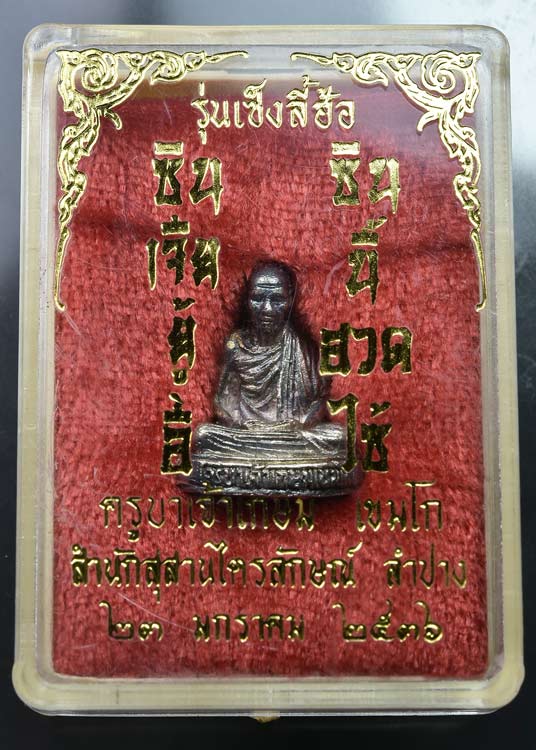 รุ่นเซ็งลี้ฮ้อ
ซิน ซิน
เจีย นี้
ยู่ ฮวด
อี่ ไช้
ครูบาเจ้าเกษม เขมโก
สำนักสุสานไตรลักษณ์ ลำปาง
๒๓ มกราคม ๒๕๓๖